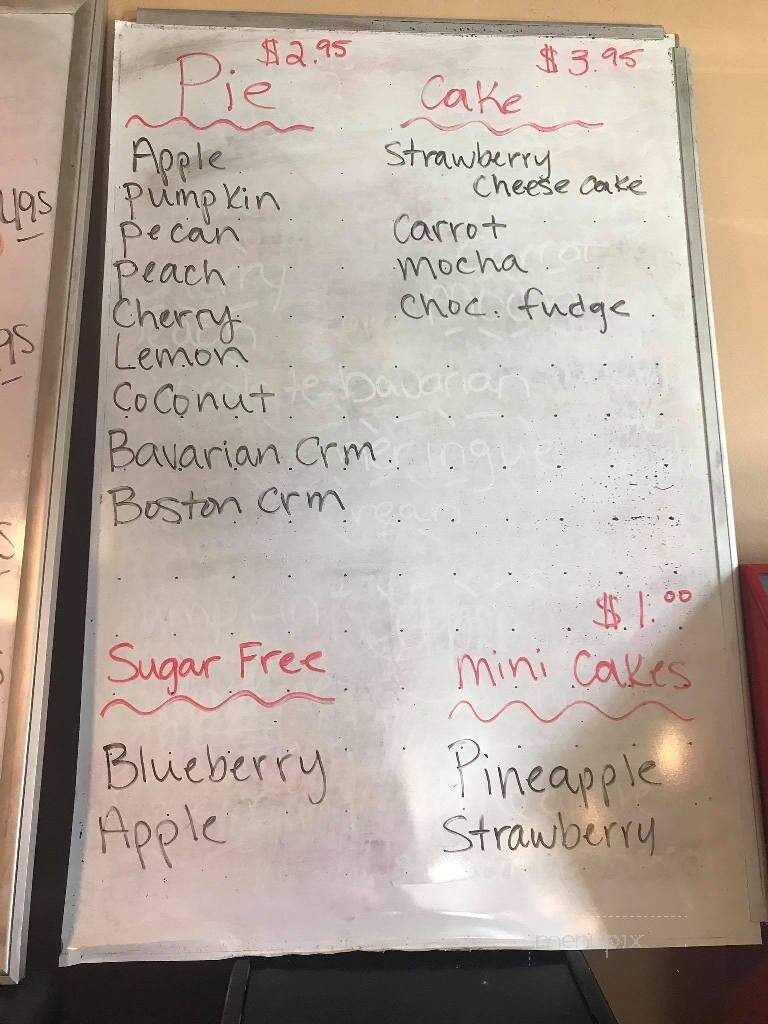 $2.95
Pie
Apple
Pumpkin
Pecan
Peach
Cherry
Lemon
Coconut
Bavarian Crm
Boston Crm
$3.95
Cake
Strawberry
Cheese Cake
Carrot
Mocha
Choc. fudge
Sugar Free
Blueberry
Apple
$1.00
Mini Cakes
Pineapple
Strawberry
495
95
menupix